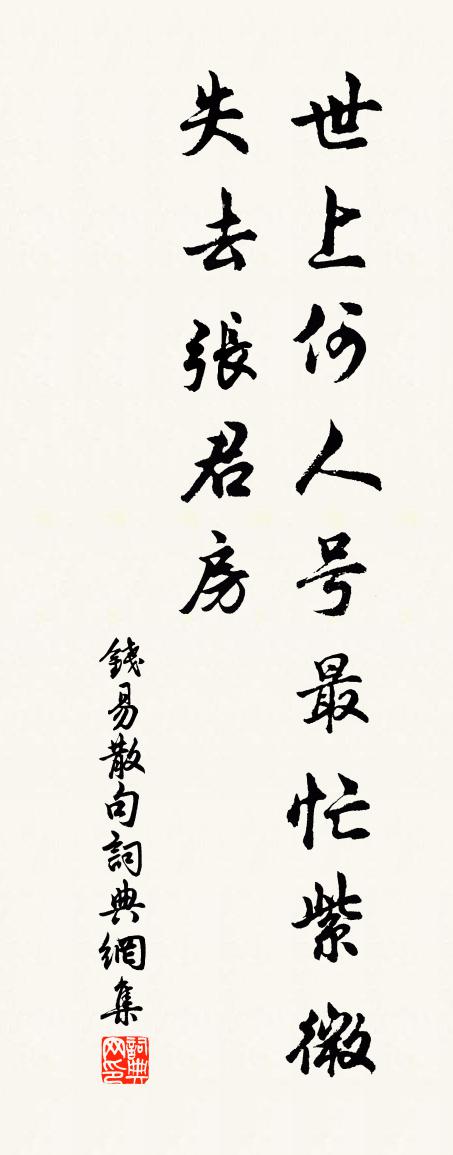 世上何人号最忙紫微
失去張君房
錢易散句詞典網集
詞典网印